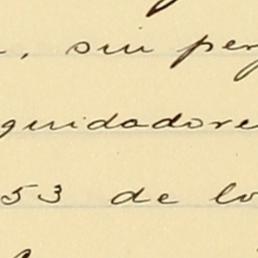 , sin per
quidadores
53 de lo